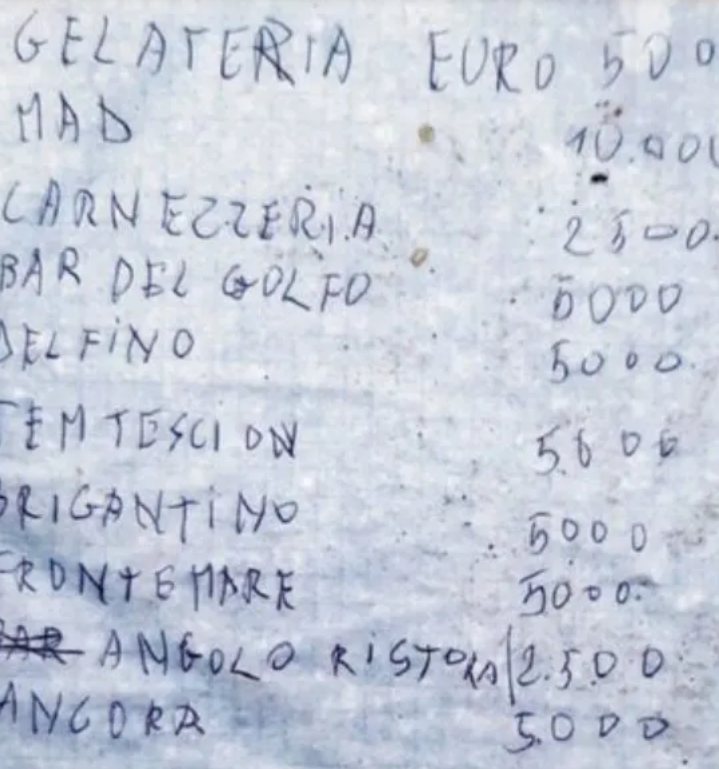 GELATERIA EURO 500
MAD 10.000
CARNEZZERIA 2500.
BAR DEL GOLFO 5000
DELFINO 5000.
TEMTESCION 5.000
BRIGANTINO 5000
FRONTEMARE 5000.
BAR ANGOLO RISTORA 2.500
ANCORA 5.000